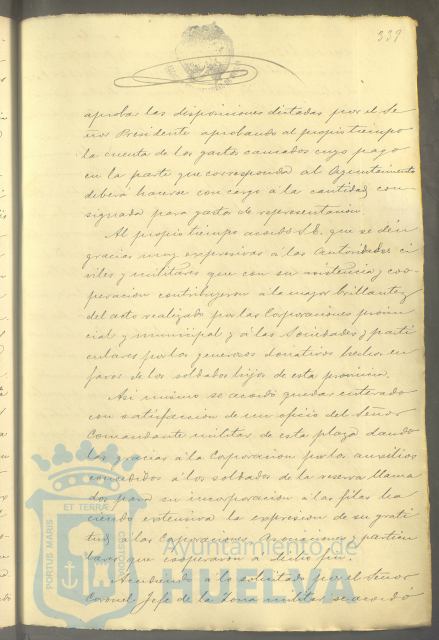 339
aprobar las disposiciones dictadas por el Se
ñor Presidente aprobando al propio tiempo
la cuenta de los gastos causados cuyo pago
en la parte que corresponda al Ayuntamiento
deberá hacerse con cargo a la cantidad con
signada para gastos de representación.
Al propio tiempo acordó S.E. que se den
gracias muy expresivas á las Autoridades ci
viles y militares que con su asistencia y coo
peracion contribuyeron á la mayor brillantez
del acto realizado por las Corporaciones provin
cial y municipal y á las Sociedades y parti
culares por los generosos donativos hechos en
favor de los soldados hijos de esta provincia.
Asi mismo se acordó quedar enterado
con satisfaccion de un oficio del Señor
Comandante militar de esta plaza dando
las gracias á la Corporacion por los auxilios
concedidos á los soldados de la reserva llama
dos para su incorporacion á las filas ha
ciendo extensiva la expresion de su grati
tud á las Corporaciones, Asociaciones y particu
lares que cooperaron a dicho fin.
Accediendo á lo solicitado por el Señor
Coronel Jefe de la Zona militar se acordó
PORTUS MARIS
ET TERRAE
CUSTODIA
Ayuntamiento de
HUELVA